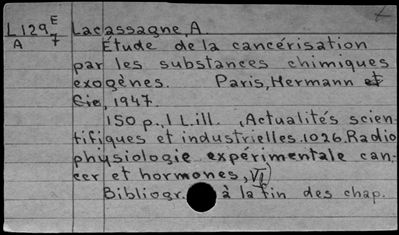 L129 E7 Lacassagne, A.
A Étude de la cancérisation
par les substances chimiques
exogènes. Paris, Hermann et
Cie, 1947.
150 p., 1 L. ill. (Actualités scien-
tifiques et industrielles. 1026. Radio
physiologie expérimentale can-
cer et hormones, VI)
Bibliogr. à la fin des chap.